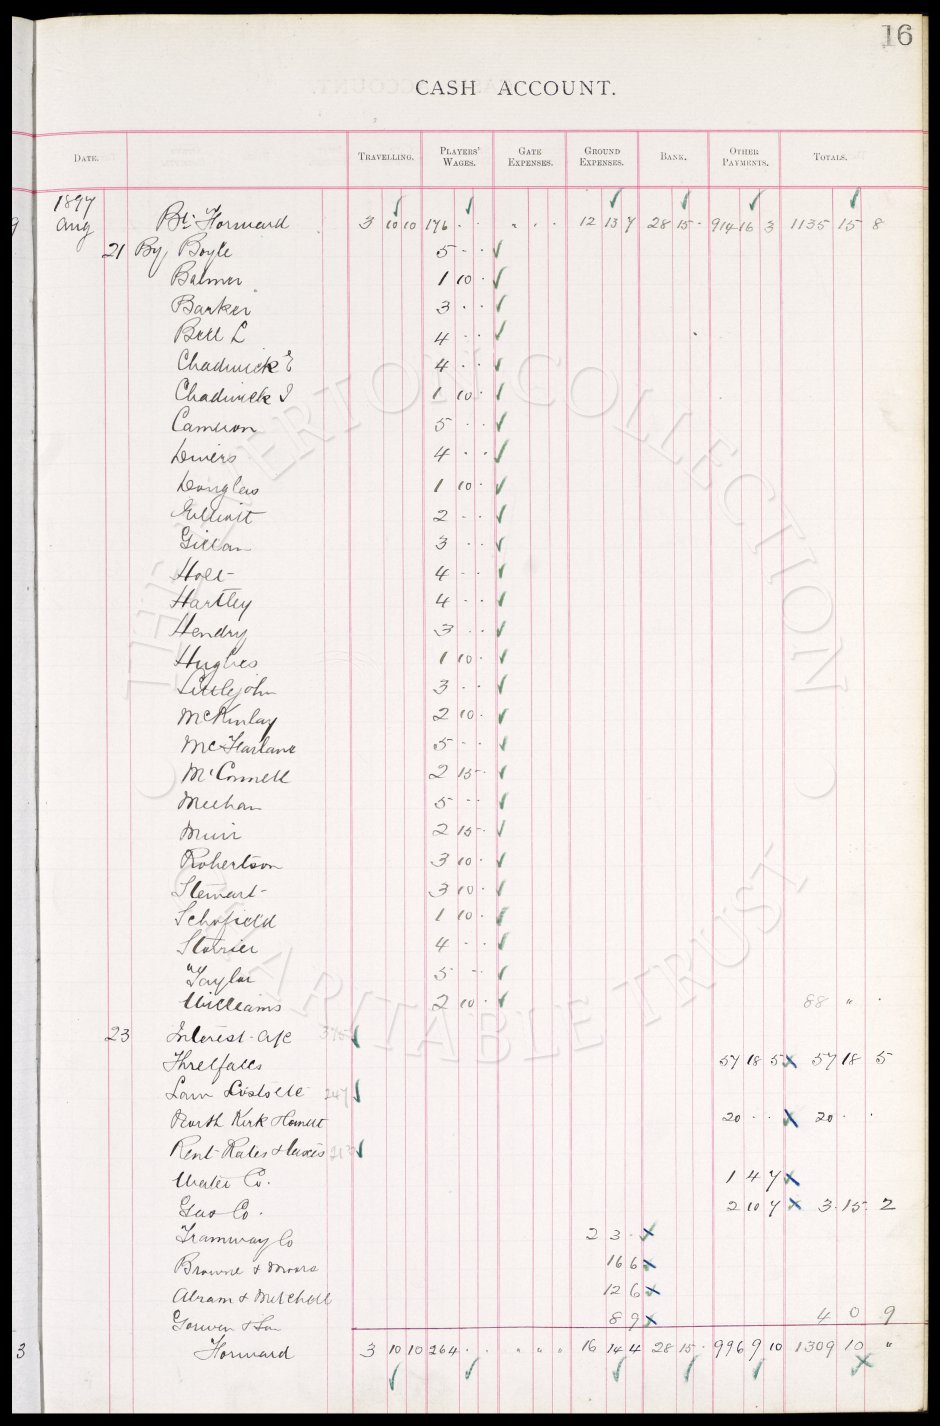 16
CASH ACCOUNT.
DATE. TRAVELLING. PLAYERS' WAGES. GATE EXPENSES. GROUND EXPENSES. BANK. OTHER PAYMENTS. TOTALS.
1897
Aug Bt. Forward 3 10 10 176 . . " . . 12 13 7 28 15 . 914 16 3 1135 15 8
21 By Boyle 5 . .
Balmer 1 10 .
Barker 3 . .
Bell L 4 . .
Chadwick E 4 . .
Chadwick I 1 10 .
Cameron 5 . .
Divers 4 . .
Douglas 1 10 .
Elliott 2 . .
Gillan 3 . .
Holt 4 . .
Hartley 4 . .
Hendry 3 . .
Hughes 1 10 .
Littlejohn 3 . .
McKinlay 2 10 .
McFarlane 5 . .
McConnell 2 15 .
Meehan 5 . .
Muir 2 15 .
Robertson 3 10 .
Stewart 3 10 .
Schofield 1 10 .
Storrier 4 . .
Taylor 5 . .
Williams 2 10 . 88 " .
23 Interest a/c
Threlfalls 57 18 5 57 18 5
247
North Kirk 20 . . 20 . .
Rent Rates & taxes
Water Co. 1 4 7
Gas Co. 2 10 7 3 15 2
Tramway Co 2 3 .
Browne & 16 6
Abram & Mitchell 12 6
& Son 8 9 4 0 9
3 Forward 3 10 10 264 . . " " " 16 14 4 28 15 . 996 9 10 1309 10 "
THE EVERTON COLLECTION
CHARITABLE TRUST